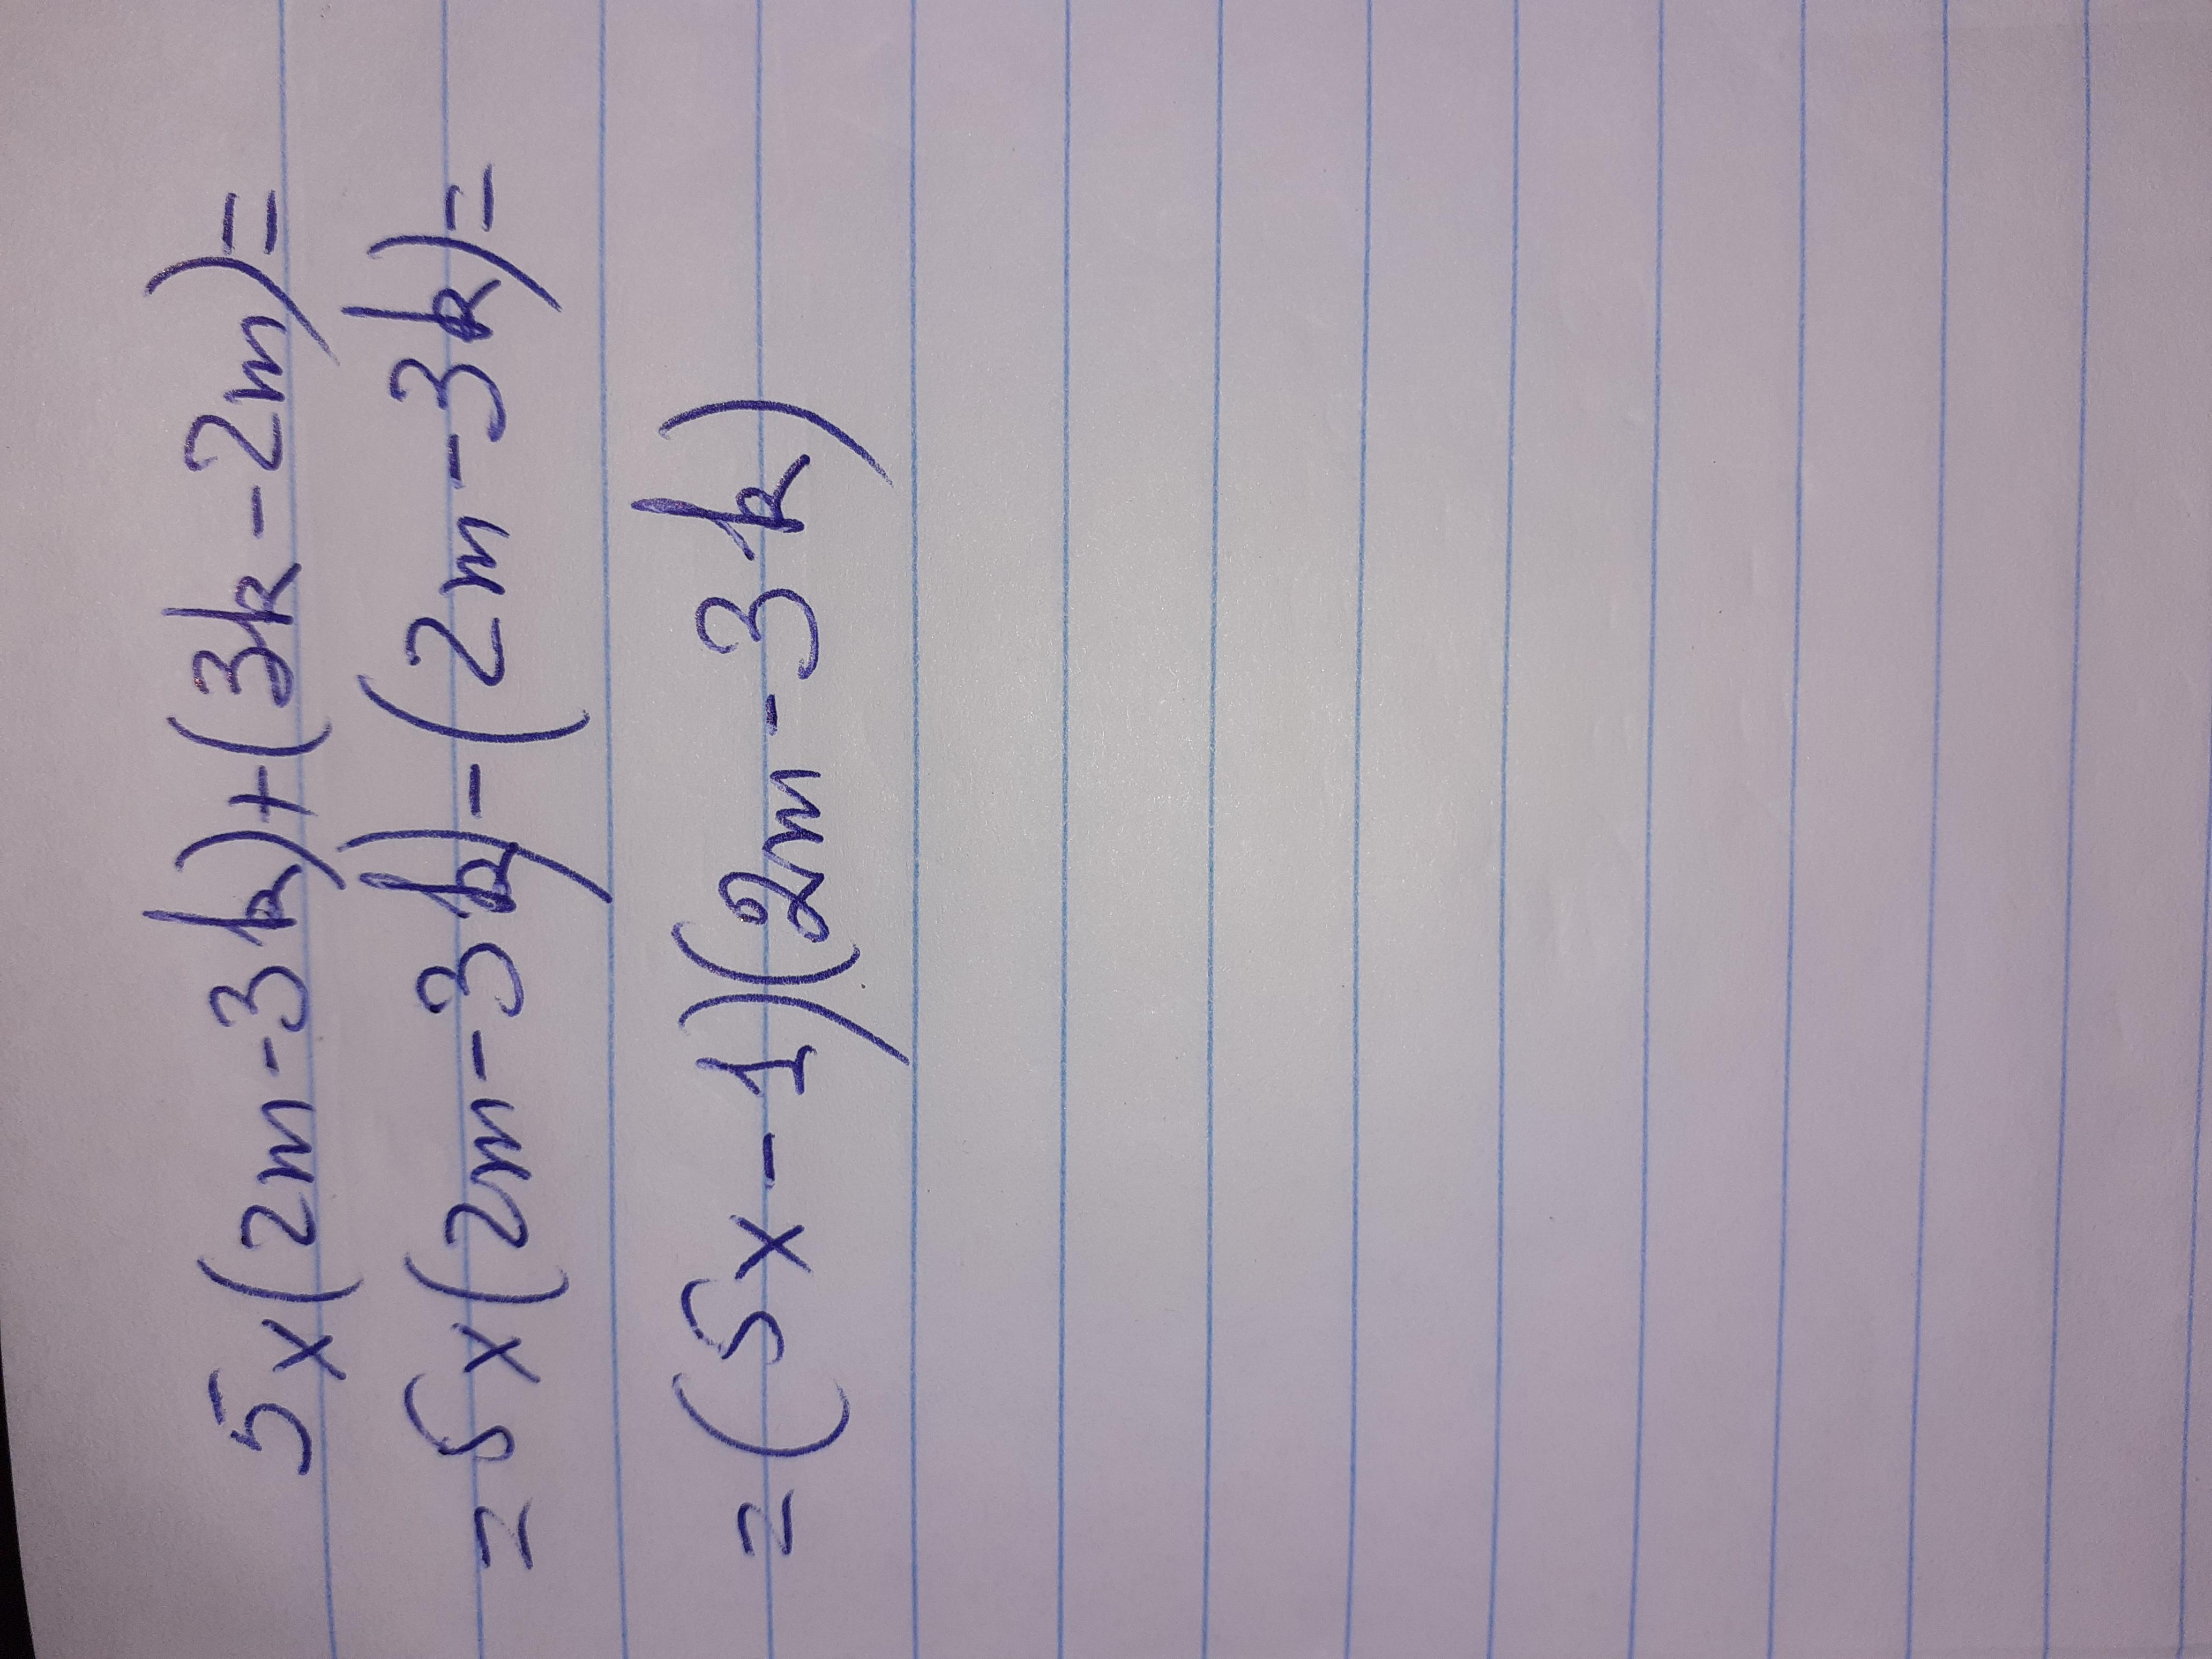 5x(2m-3k)+(3k-2m)=
=5x(2m-3k)-(2m-3k)=
=(5x-1)(2m-3k)